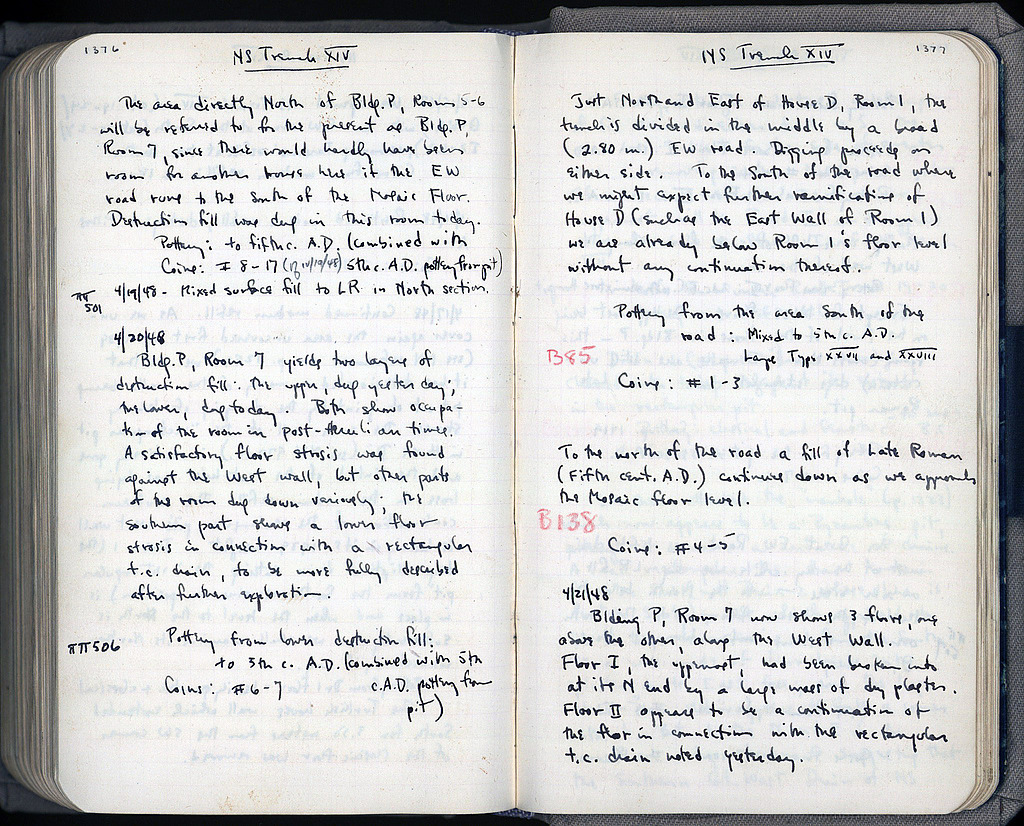 1376
NS Trench XIV
The area directly North of Bldg. P, Rooms 5-6
will be referred to for the present as Bldg. P
Room 7, since there would hardly have been
room for another house here if the EW
road runs to the South of the Mosaic Floor.
Destruction fill was dug in this room today.
Pottery: to fifth c. A.D. (combined with
Coins: # 8-17 (of 4/19/48) 5th c. A.D. pottery from pit)
ΠΠ 501
4/19/48 - Mixed surface fill to LR in North section.
4/20/48
Bldg. P, Room 7 yields two layers of
destruction fill: the upper, dug yesterday;
the lower, dug today. Both show occupa-
tion of the room in post-Herulian times.
A satisfactory floor strosis was found
against the West wall, but other parts
of the room dug down variously; the
southern part shows a lower floor
strosis in connection with a rectangular
t.c. drain, to be more fully described
after further exploration.
ΠΠ 506
Pottery from lower destruction fill:
to 5th c. A.D. (combined with 5th
Coins: #6-7 c. A.D. pottery from
pit)
1377
NS Trench XIV
Just North and East of House D, Room 1, the
trench is divided in the middle by a broad
(2.80 m.) EW road. Digging proceeds on
either side. To the South of the road where
we might expect further ramifications of
House D (such as the East Wall of Room 1)
we are already below Room 1's floor level
without any continuation thereof.
Pottery from the area South of the
road: Mixed to 5th c. A.D.
B85
Lamps Type XXVII and XXVIII
Coins: # 1-3
To the north of the road a fill of Late Roman
(Fifth cent. A.D.) continues down as we approach
the Mosaic floor level.
B138
Coins: #4-5
4/21/48
Bldg P, Room 7 now shows 3 floors, one
above the other, along the West Wall.
Floor I, the uppermost, had been broken into
at its N end by a large mass of dry plaster.
Floor II appears to be a continuation of
the floor in connection with the rectangular
t.c. drain noted yesterday.